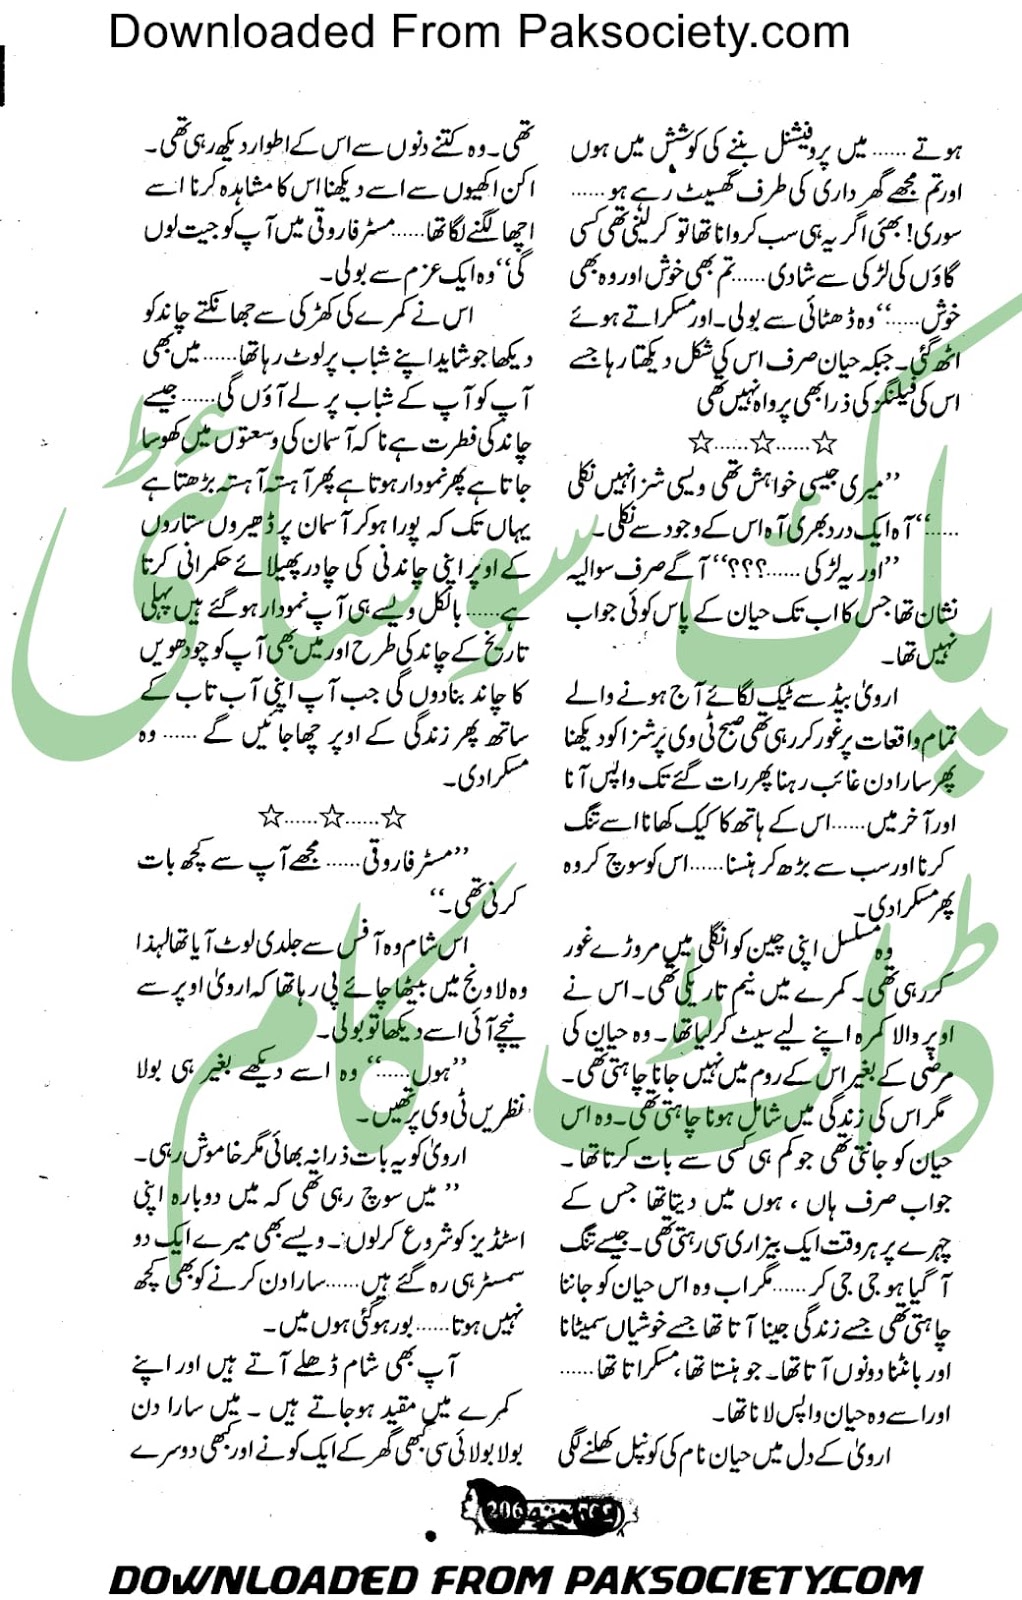 Downloaded From Paksociety.com
ہوتے ...... میں پروفیشنل بننے کی کوشش میں ہوں
اور تم مجھے گھر داری کی طرف گھسیٹ رہے ہو......
سوری! بھئی اگر یہ ہی سب کروانا تھا تو کر لینی تھی کسی
گاؤں کی لڑکی سے شادی...... تم بھی خوش اور وہ بھی
خوش......‘‘ وہ ڈھٹائی سے بولی۔ اور مسکراتے ہوئے
اٹھ گئی۔ جبکہ حیان صرف اس کی شکل دیکھتا رہا جسے
اس کی فیلنگز کی ذرا بھی پرواہ نہیں تھی
☆......☆......☆
’’میری جیسی خواہش تھی ویسی شزا نہیں نکلی
......‘‘ آہ ایک درد بھری آہ اس کے وجود سے نکلی۔
’’اور یہ لڑکی ......؟؟؟‘‘ آگے صرف سوالیہ
نشان تھا جس کا اب تک حیان کے پاس کوئی جواب
نہیں تھا۔
ارویٰ بیڈ سے ٹیک لگائے آج ہونے والے
تمام واقعات پر غور کر رہی تھی صبح ٹی وی پر شزا کو دیکھنا
پھر سارا دن غائب رہنا پھر رات گئے تک واپس آنا
اور آخر میں...... اس کے ہاتھ کا کیک کھانا اسے تنگ
کرنا اور سب سے بڑھ کر ہنسنا...... اس کو سوچ کر وہ
پھر مسکرا دی۔
وہ مسلسل اپنی چین کو انگلی میں مروڑے غور
کر رہی تھی۔ کمرے میں نیم تاریکی تھی۔ اس نے
اوپر والا کمرہ اپنے لیے سیٹ کر لیا تھا۔ وہ حیان کی
مرضی کے بغیر اس کے روم میں نہیں جانا چاہتی تھی۔
مگر اس کی زندگی میں شامل ہونا چاہتی تھی۔ وہ اس
حیان کو جانتی تھی جو کم ہی کسی سے بات کرتا تھا۔
جواب صرف ہاں ، ہوں میں دیتا تھا جس کے
چہرے پر ہر وقت ایک بیزاری سی رہتی تھی۔ جیسے تنگ
آ گیا ہو جی جی کر...... مگر اب وہ اس حیان کو جاننا
چاہتی تھی جسے زندگی جینا آتا تھا جسے خوشیاں سمیٹنا
اور بانٹنا دونوں آتا تھا۔ جو ہنستا تھا، مسکراتا تھا......
اور اسے وہ حیان واپس لانا تھا۔
ارویٰ کے دل میں حیان نام کی کونپل کھلنے لگی
تھی۔ وہ کتنے دنوں سے اس کے اطوار دیکھ رہی تھی۔
اکن اکھیوں سے اسے دیکھنا اس کا مشاہدہ کرنا اسے
اچھا لگنے لگا تھا...... مسٹر فاروقی میں آپ کو جیت لوں
گی‘‘ وہ ایک عزم سے بولی۔
اس نے کمرے کی کھڑکی سے جھانکتے چاند کو
دیکھا جو شاید اپنے شباب پر لوٹ رہا تھا...... میں بھی
آپ کو آپ کے شباب پر لے آؤں گی...... جیسے
چاند کی فطرت ہے نا کہ آسمان کی وسعتوں میں کھو سا
جاتا ہے پھر نمودار ہوتا ہے پھر آہستہ آہستہ بڑھتا ہے
یہاں تک کہ پورا ہو کر آسمان پر ڈھیروں ستاروں
کے اوپر اپنی چاندنی کی چادر پھیلائے حکمرانی کرتا
ہے...... بالکل ویسے ہی آپ نمودار ہو گئے ہیں پہلی
تاریخ کے چاند کی طرح اور میں بھی آپ کو چودھویں
کا چاند بنا دوں گی جب آپ اپنی آب تاب کے
ساتھ پھر زندگی کے اوپر چھا جائیں گے ...... وہ
مسکرا دی۔
☆......☆......☆
’’مسٹر فاروقی...... مجھے آپ سے کچھ بات
کرنی تھی۔‘‘
اس شام وہ آفس سے جلدی لوٹ آیا تھا لہذا
وہ لاونج میں بیٹھا چائے پی رہا تھا کہ ارویٰ اوپر سے
نیچے آئی اسے دیکھا تو بولی۔
’’ہوں......‘‘ وہ اسے دیکھے بغیر ہی بولا
نظریں ٹی وی پر تھیں۔
ارویٰ کو یہ بات ذرا نہ بھائی مگر خاموش رہی۔
’’میں سوچ رہی تھی کہ میں دوبارہ اپنی
اسٹڈیز کو شروع کر لوں۔ ویسے بھی میرے ایک دو
سمسٹر ہی رہ گئے ہیں...... سارا دن کرنے کو بھی کچھ
نہیں ہوتا...... بور ہو گئی ہوں میں۔
آپ بھی شام ڈھلے آتے ہیں اور اپنے
کمرے میں مقید ہو جاتے ہیں۔ میں سارا دن
بولا بولائی سی کبھی گھر کے ایک کونے اور کبھی دوسرے
پاک سوسائٹی
ڈاٹ کام
206
DOWNLOADED FROM PAKSOCIETY.COM